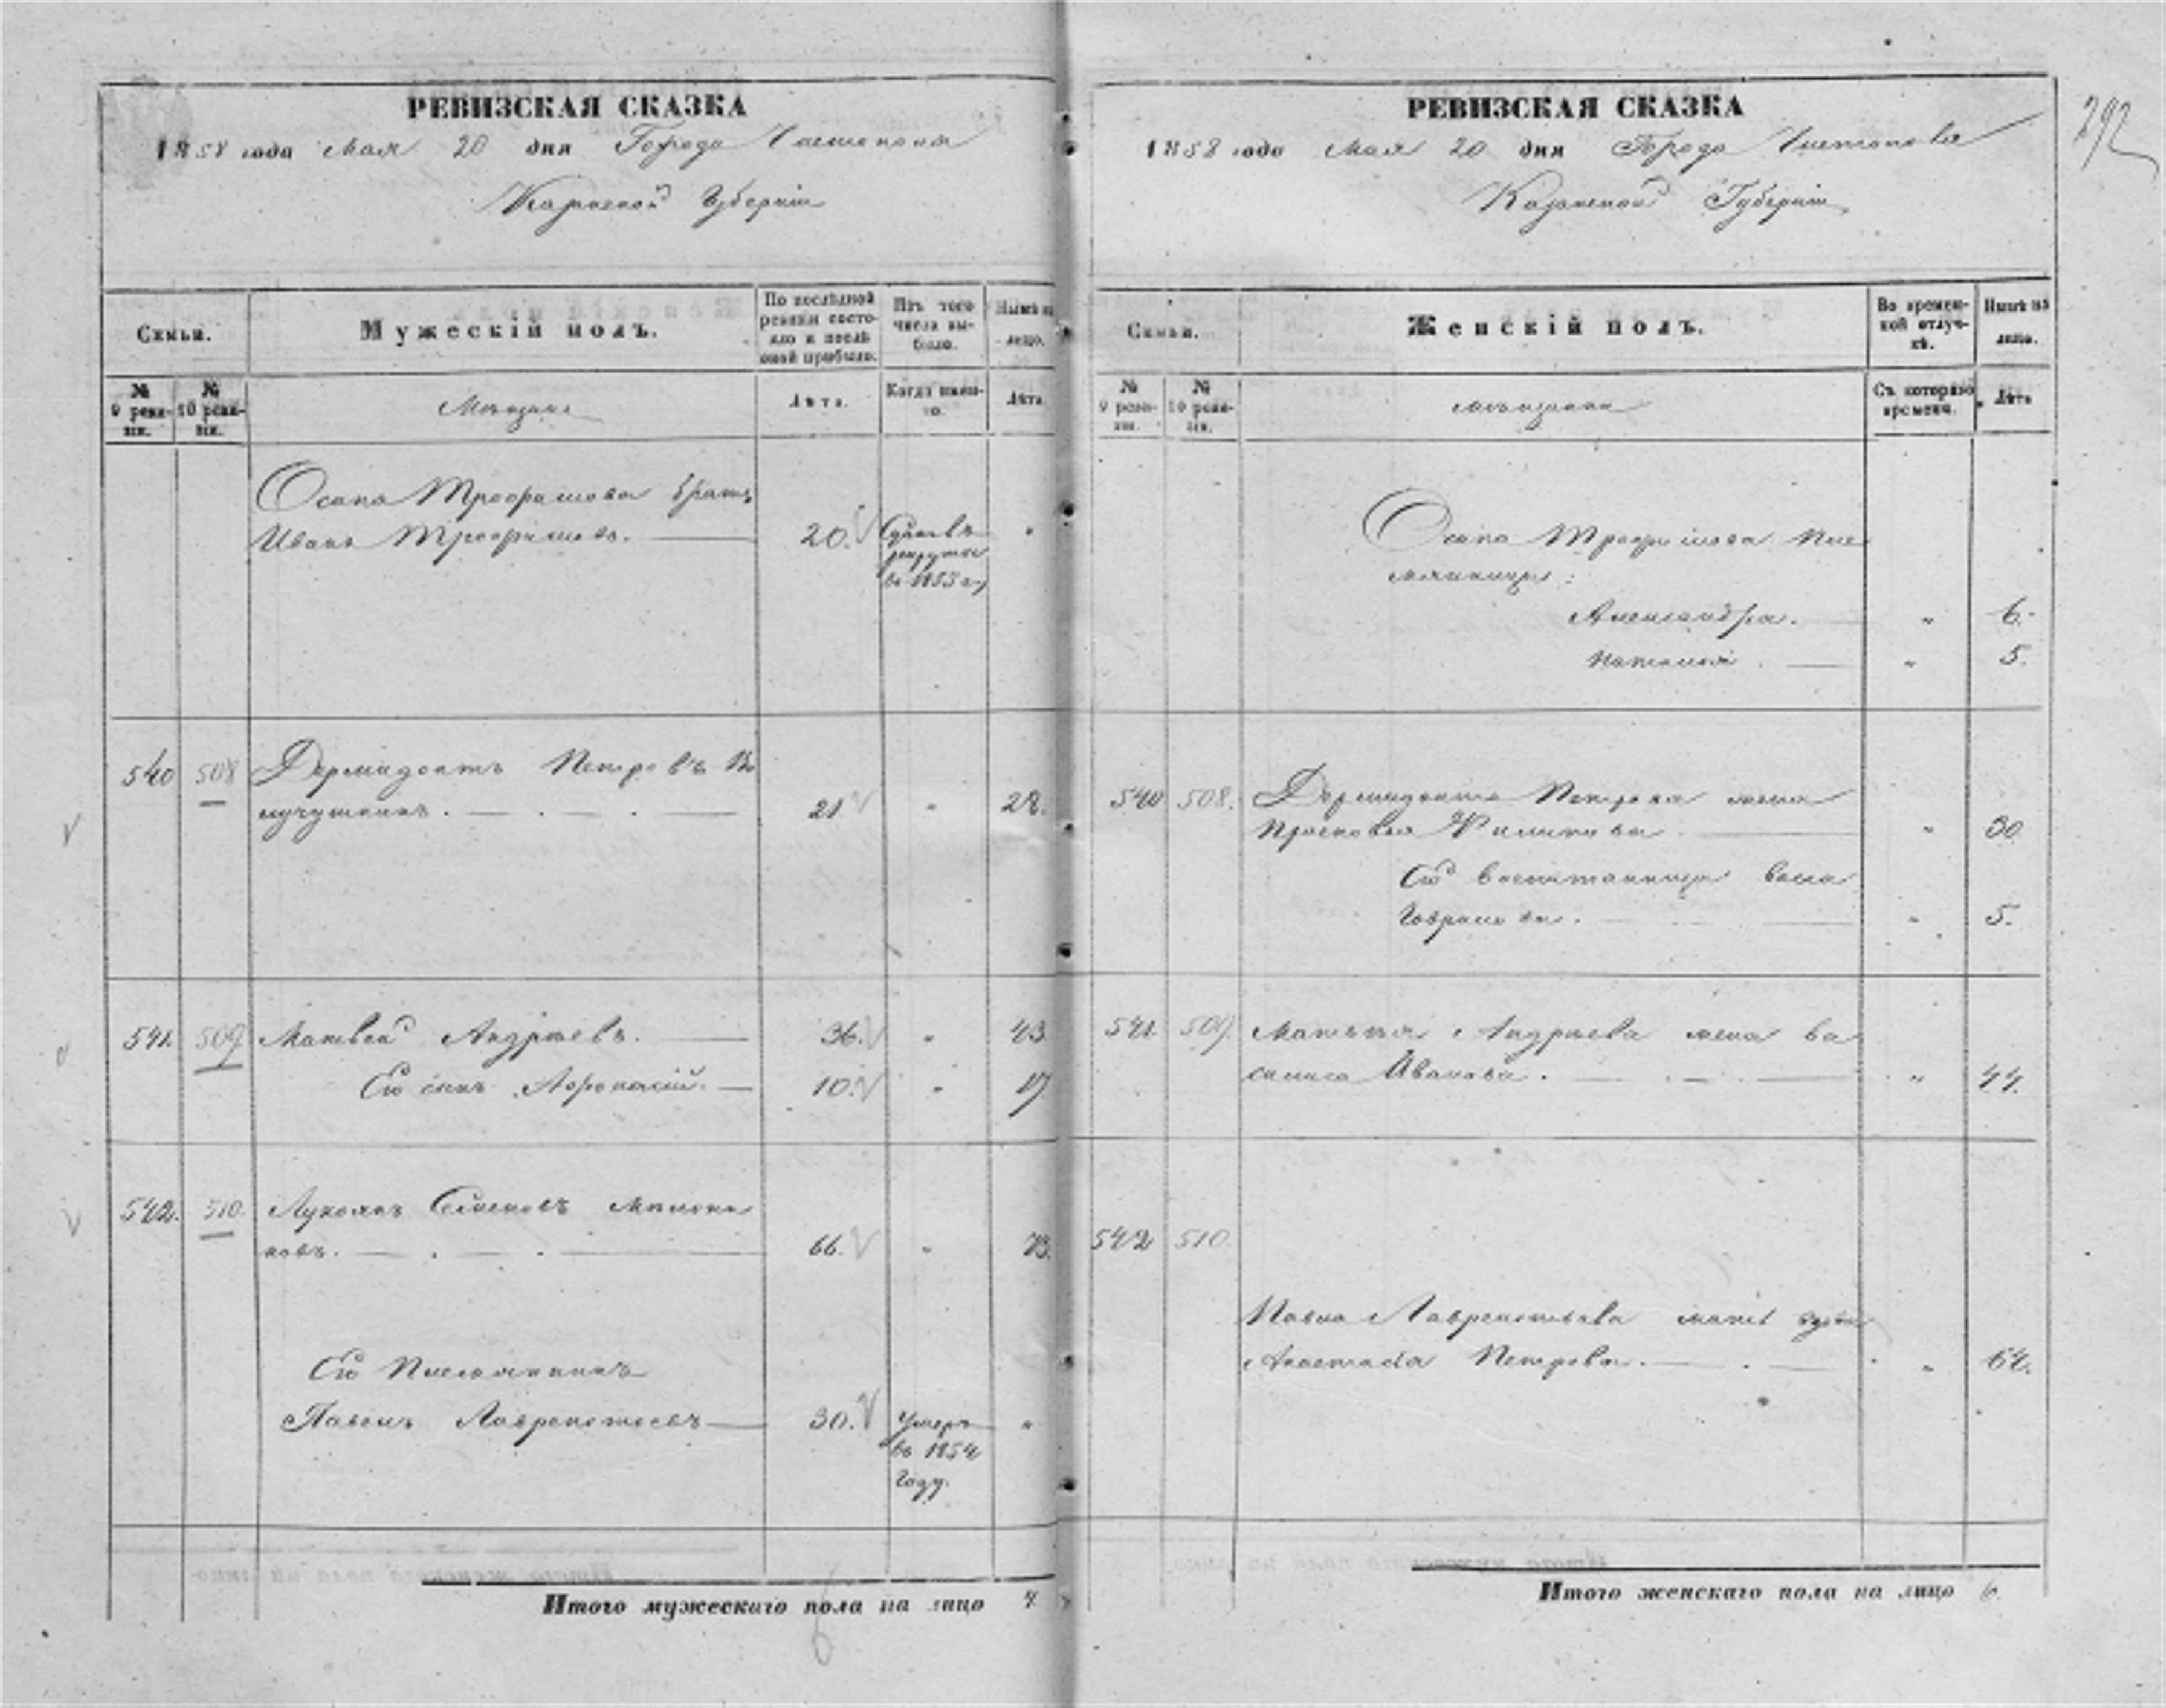 РЕВИЗСКАЯ СКАЗКА
1858 года Мая 20 дня Города Чистополя
Казанской Губерніи
Семьи.
Мужескій полъ.
По послѣдней ревизіи состояло и послѣ оной прибыло.
Изъ того числа выбыло.
Нынѣ на лицо.
№ 9 ревизіи.
№ 10 ревизіи.
Мещане
Лѣта.
Когда именно.
Лѣта.
Осипа Трофимова братъ
Иванъ Трофимовъ. 20. Сданъ въ рекруты въ 1853 г. "
540 508 Дермидонтъ Петровъ
21 " 28.
541. 509 Матвей Андреевъ. 36. " 43
Его сынъ Афонасій. 10. " 17
542. 510. Лукоянъ Семеновъ
новъ. 66. " 73.
Его Племянникъ
Павелъ Лаврентьевъ 30. Умеръ въ 1854 году. "
Итого мужескаго пола на лицо 4.
РЕВИЗСКАЯ СКАЗКА
1858 года Мая 20 дня Города Чистополя
Казанской Губерніи
292
Семьи.
Женскій полъ.
Во временной отлучкѣ.
Нынѣ на лицо.
№ 9 ревизіи.
№ 10 ревизіи.
мещанки
Съ котораго времени.
Лѣта
Осипа Трофимова пле
мянницы:
Александра. " 6.
Наталья. " 5.
540 508. Дермидонта Петрова жена
Прасковья Филипова. " 30.
Ей воспитанница
Гаврилова. " 5.
541. 509. Матвея Андреева жена Ва
силиса Иванова. " 44.
542 510.
Павла Лаврентьева мать
Анастасія Петрова. " 64.
Итого женскаго пола на лицо 6.